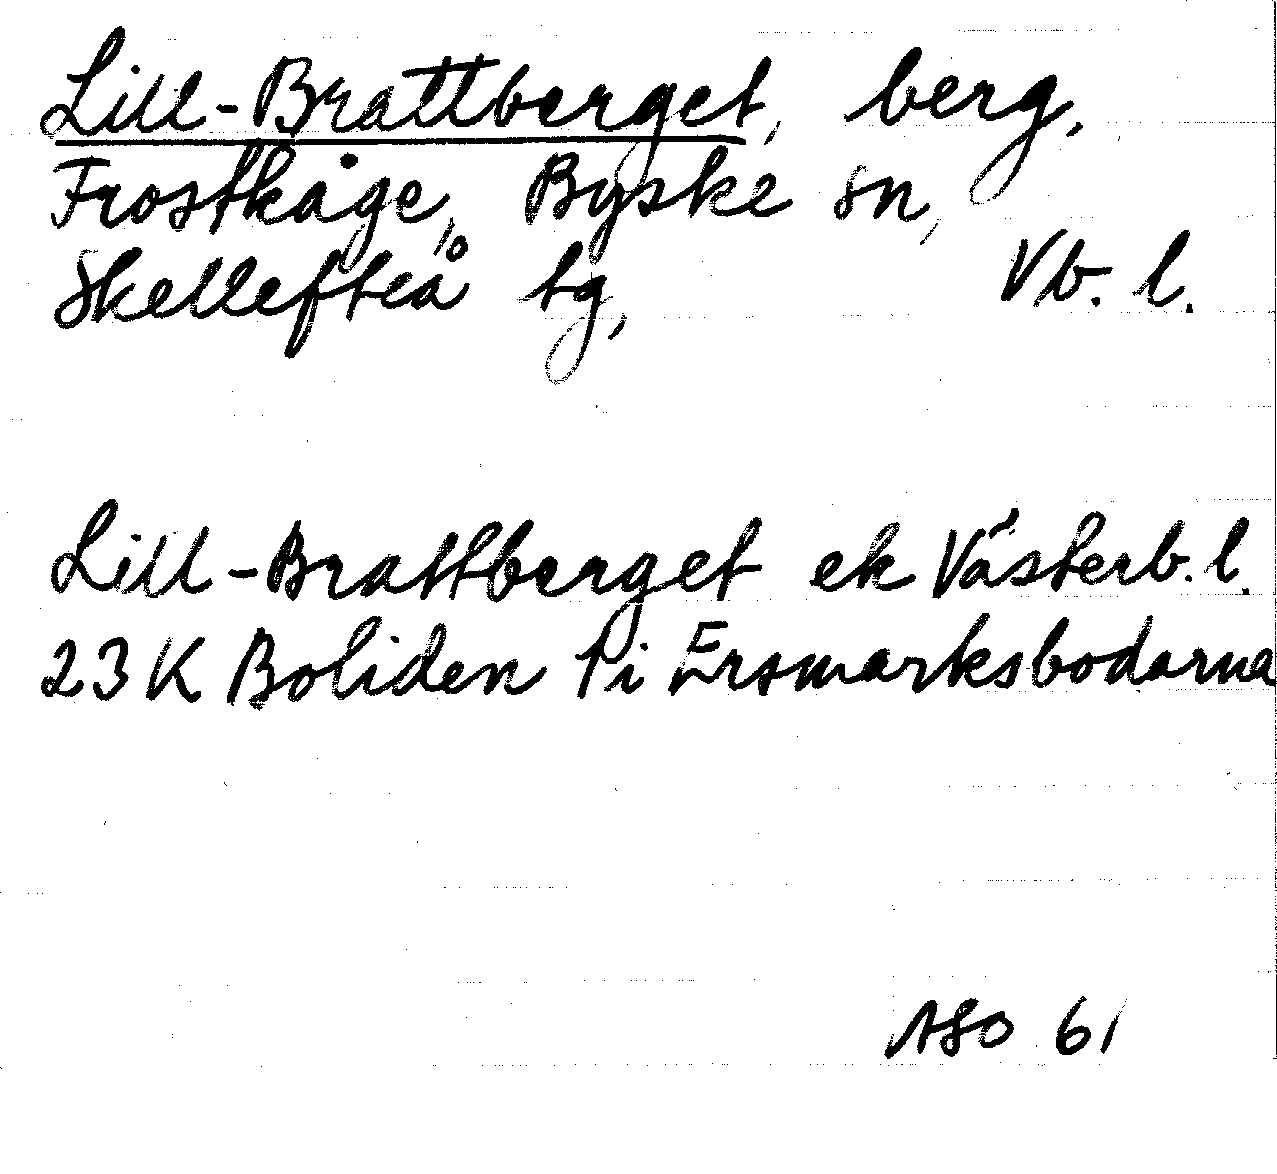 Lill-Brattberget, berg.
Frostkåge, Byske sn,
Skellefteå tg, Vb. l.
Lill-Brattberget ek Västerb. l.
23K Boliden 1i Ersmarksbodarna
ASO 61